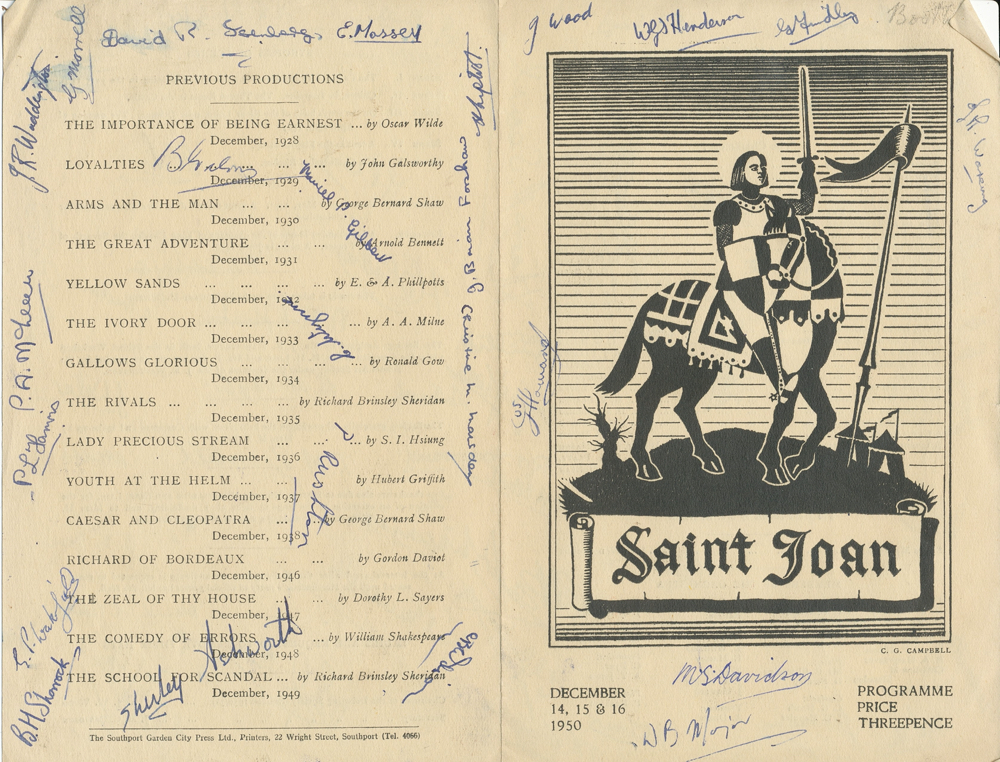 David R.
E. Massey
G Morrell
J R Waddington
PREVIOUS PRODUCTIONS
THE IMPORTANCE OF BEING EARNEST ... by Oscar Wilde
December, 1928
LOYALTIES ... ... by John Galsworthy
December, 1929
ARMS AND THE MAN ... ... by George Bernard Shaw
December, 1930
THE GREAT ADVENTURE ... ... by Arnold Bennett
December, 1931
YELLOW SANDS ... ... ... by E. & A. Phillpotts
December, 1932
THE IVORY DOOR ... ... ... by A. A. Milne
December, 1933
GALLOWS GLORIOUS ... ... by Ronald Gow
December, 1934
THE RIVALS ... ... ... by Richard Brinsley Sheridan
December, 1935
LADY PRECIOUS STREAM ... ... by S. I. Hsiung
December, 1936
YOUTH AT THE HELM ... ... by Hubert Griffith
December, 1937
CAESAR AND CLEOPATRA ... ... by George Bernard Shaw
December, 1938
RICHARD OF BORDEAUX ... ... by Gordon Daviot
December, 1946
THE ZEAL OF THY HOUSE ... by Dorothy L. Sayers
December, 1947
THE COMEDY OF ERRORS ... by William Shakespeare
December, 1948
THE SCHOOL FOR SCANDAL ... by Richard Brinsley Sheridan
December, 1949
Muriel P. Gilbert
P. A. McKeem
P L Harris
Christine M. Marsden
B. H. Sharrock
Shirley Ashworth
The Southport Garden City Press Ltd., Printers, 22 Wright Street, Southport (Tel. 4066)
J Wood
W G S Henderson
G Findley
Saint Joan
C. G. CAMPBELL
M S Davidson
W B Major
DECEMBER
14, 15 & 16
1950
PROGRAMME
PRICE
THREEPENCE